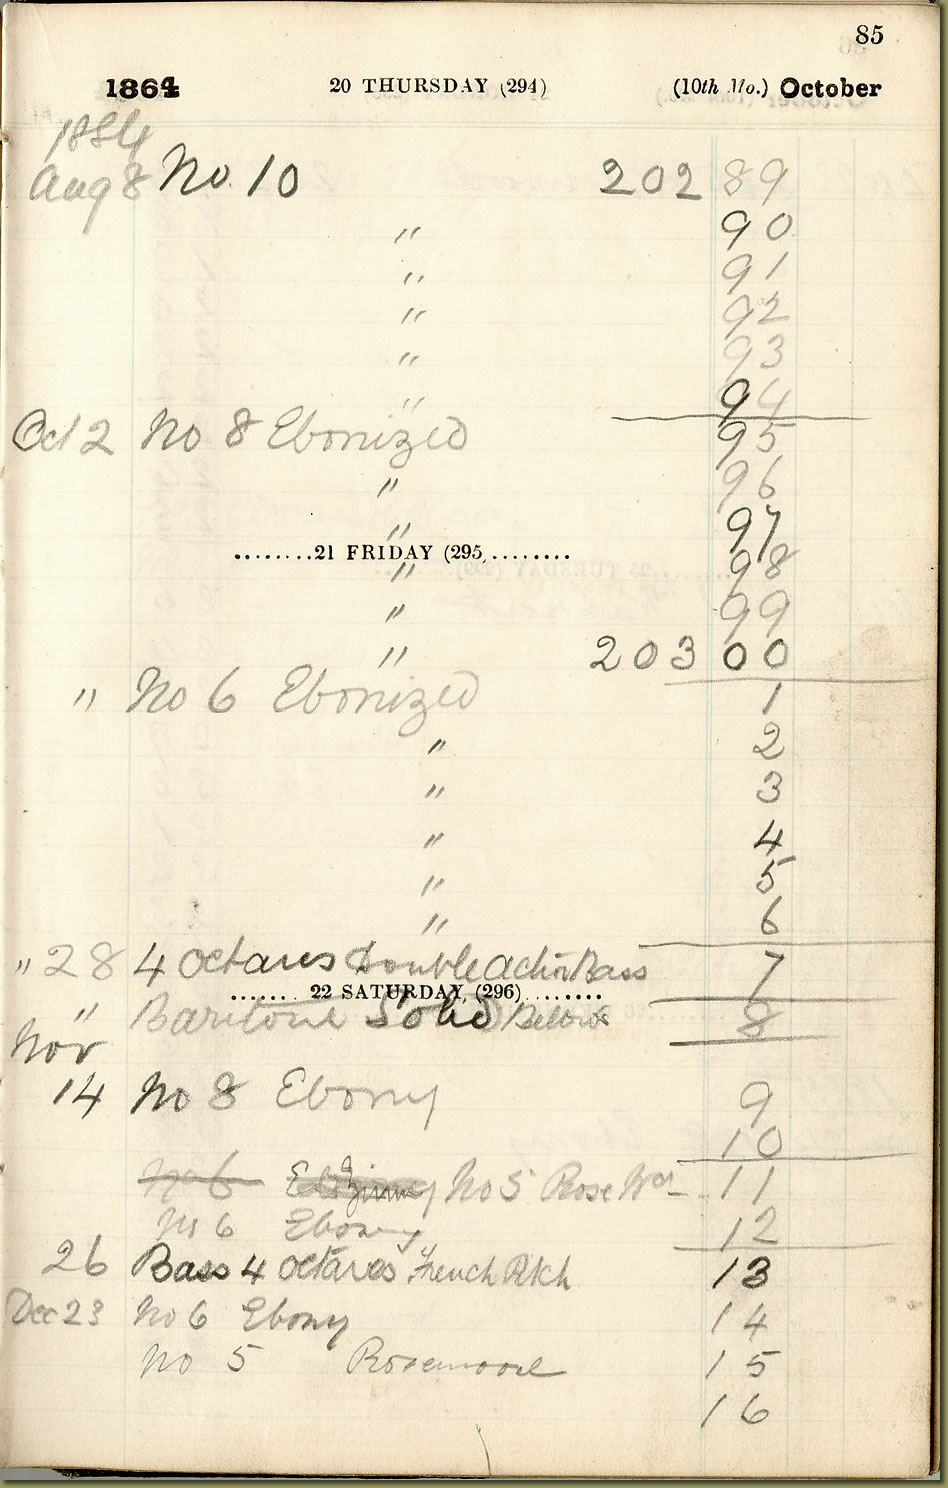 85
1864 20 THURSDAY (294) (10th Mo.) October
1884
Aug 8 No. 10 202 89
" 90
" 91
" 92
" 93
" 94
Oct 2 No 8 Ebonized 95
" 96
" 97
........21 FRIDAY (295.........
" 98
" 99
" 203 00
" No 6 Ebonized 1
" 2
" 3
" 4
" 5
" 6
" 28 4 octaves Double Action Bass 7
....... 22 SATURDAY, (296)........
" Baritone Solid Bellows 8
Nov
14 No 8 Ebony 9
10
No 6 No 5 Rose Wd 11
No 6 Ebony 12
26 Bass 4 octaves French Pitch 13
Dec 23 No 6 Ebony 14
No 5 Rosewood 15
16